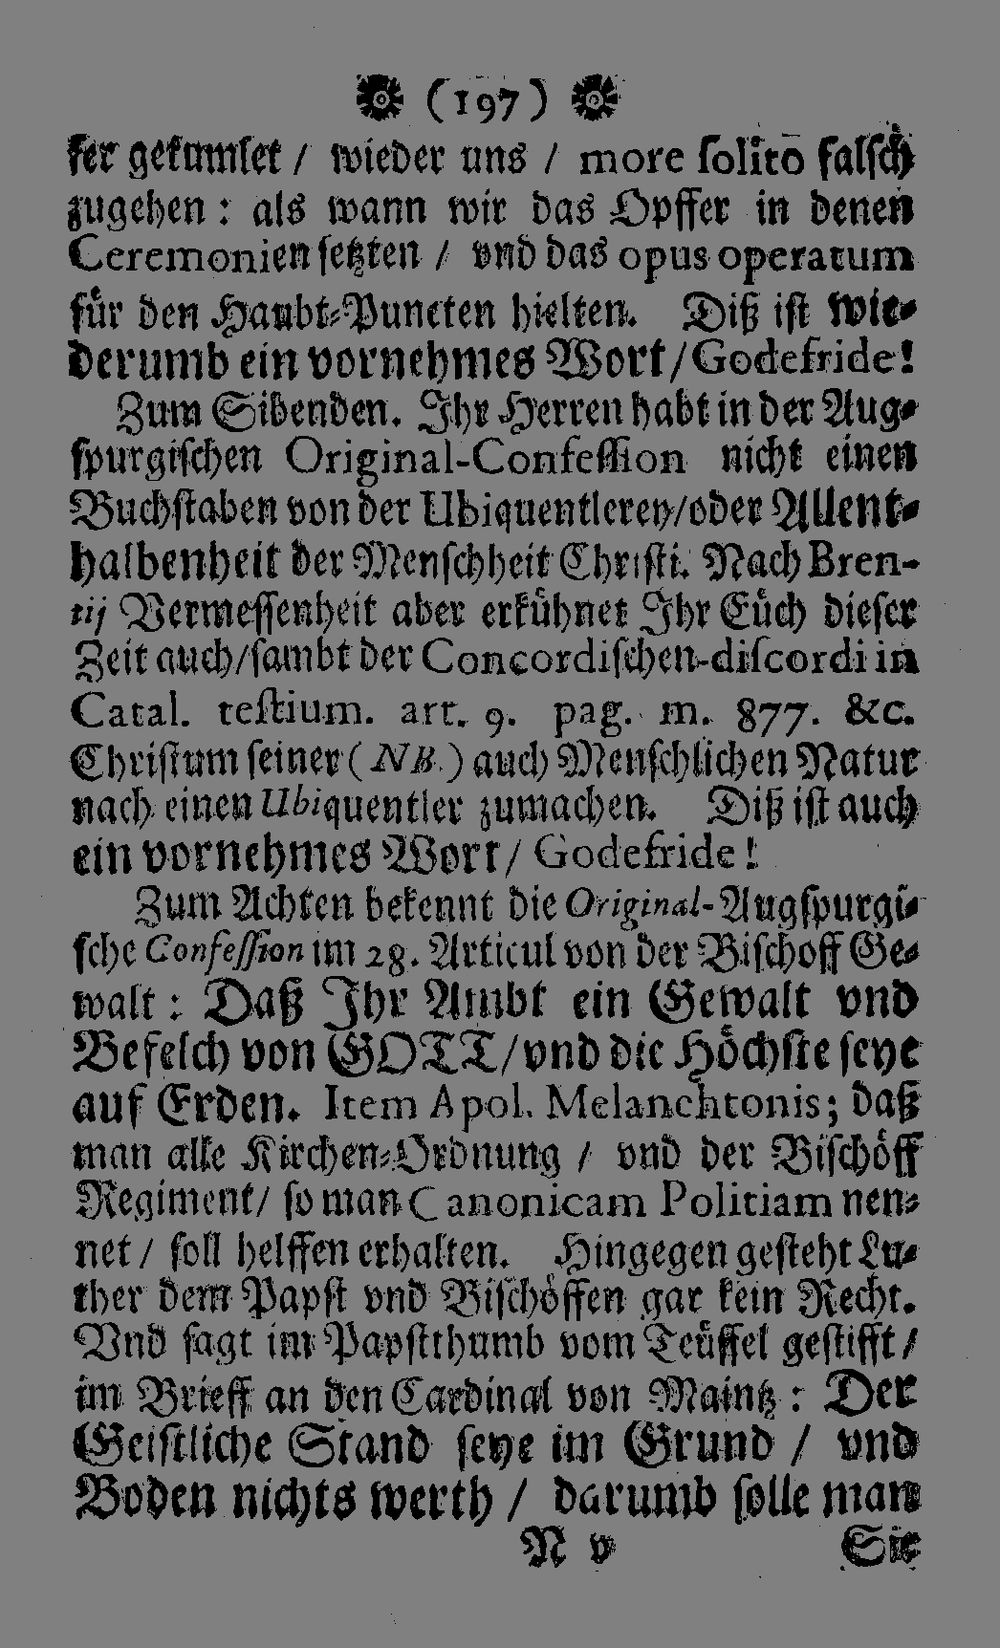 (197)
ser gekünslet / wieder uns / more solitò falsch
zugehen : als wann wir das Opffer in denen
Ceremonien setzten / vnd das opus operatum
für den Haubt-Puncten hielten. Diß ist wie-
derumb ein vornehmes Wort / Godefride!
Zum Sibenden. Ihr Herren habt in der Aug-
spurgischen Original-Confession nicht einen
Buchstaben von der Ubiquentlerey/oder Allent-
halbenheit der Menschheit Christi. Nach Bren-
tij Vermessenheit aber erkühnet Ihr Eüch dieser
Zeit auch/sambt der Concordischen-discordi in
Catal. testium. art. 9. pag. m. 877. &c.
Christum seiner (NB.) auch Menschlichen Natur
nach einen Ubiquentler zumachen. Diß ist auch
ein vornehmes Wort / Godefride!
Zum Achten bekennt die Original-Augspurgi-
sche Confession im 28. Articul von der Bischoff Ge-
walt : Daß Ihr Ambt ein Gewalt vnd
Befelch von GOTT/vnd die Höchste seye
auf Erden. Item Apol. Melanchtonis; daß
man alle Kirchen-Ordnung / vnd der Bischöff
Regiment / so man Canonicam Politiam nen-
net / soll helffen erhalten. Hingegen gesteht Lu-
ther dem Papst vnd Bischöffen gar kein Recht.
Vnd sagt im Papstthumb vom Teüffel gestifft /
im Brieff an den Cardinal von Maintz : Der
Geistliche Stand seye im Grund / vnd
Boden nichts werth / darumb solle man
N v Sie